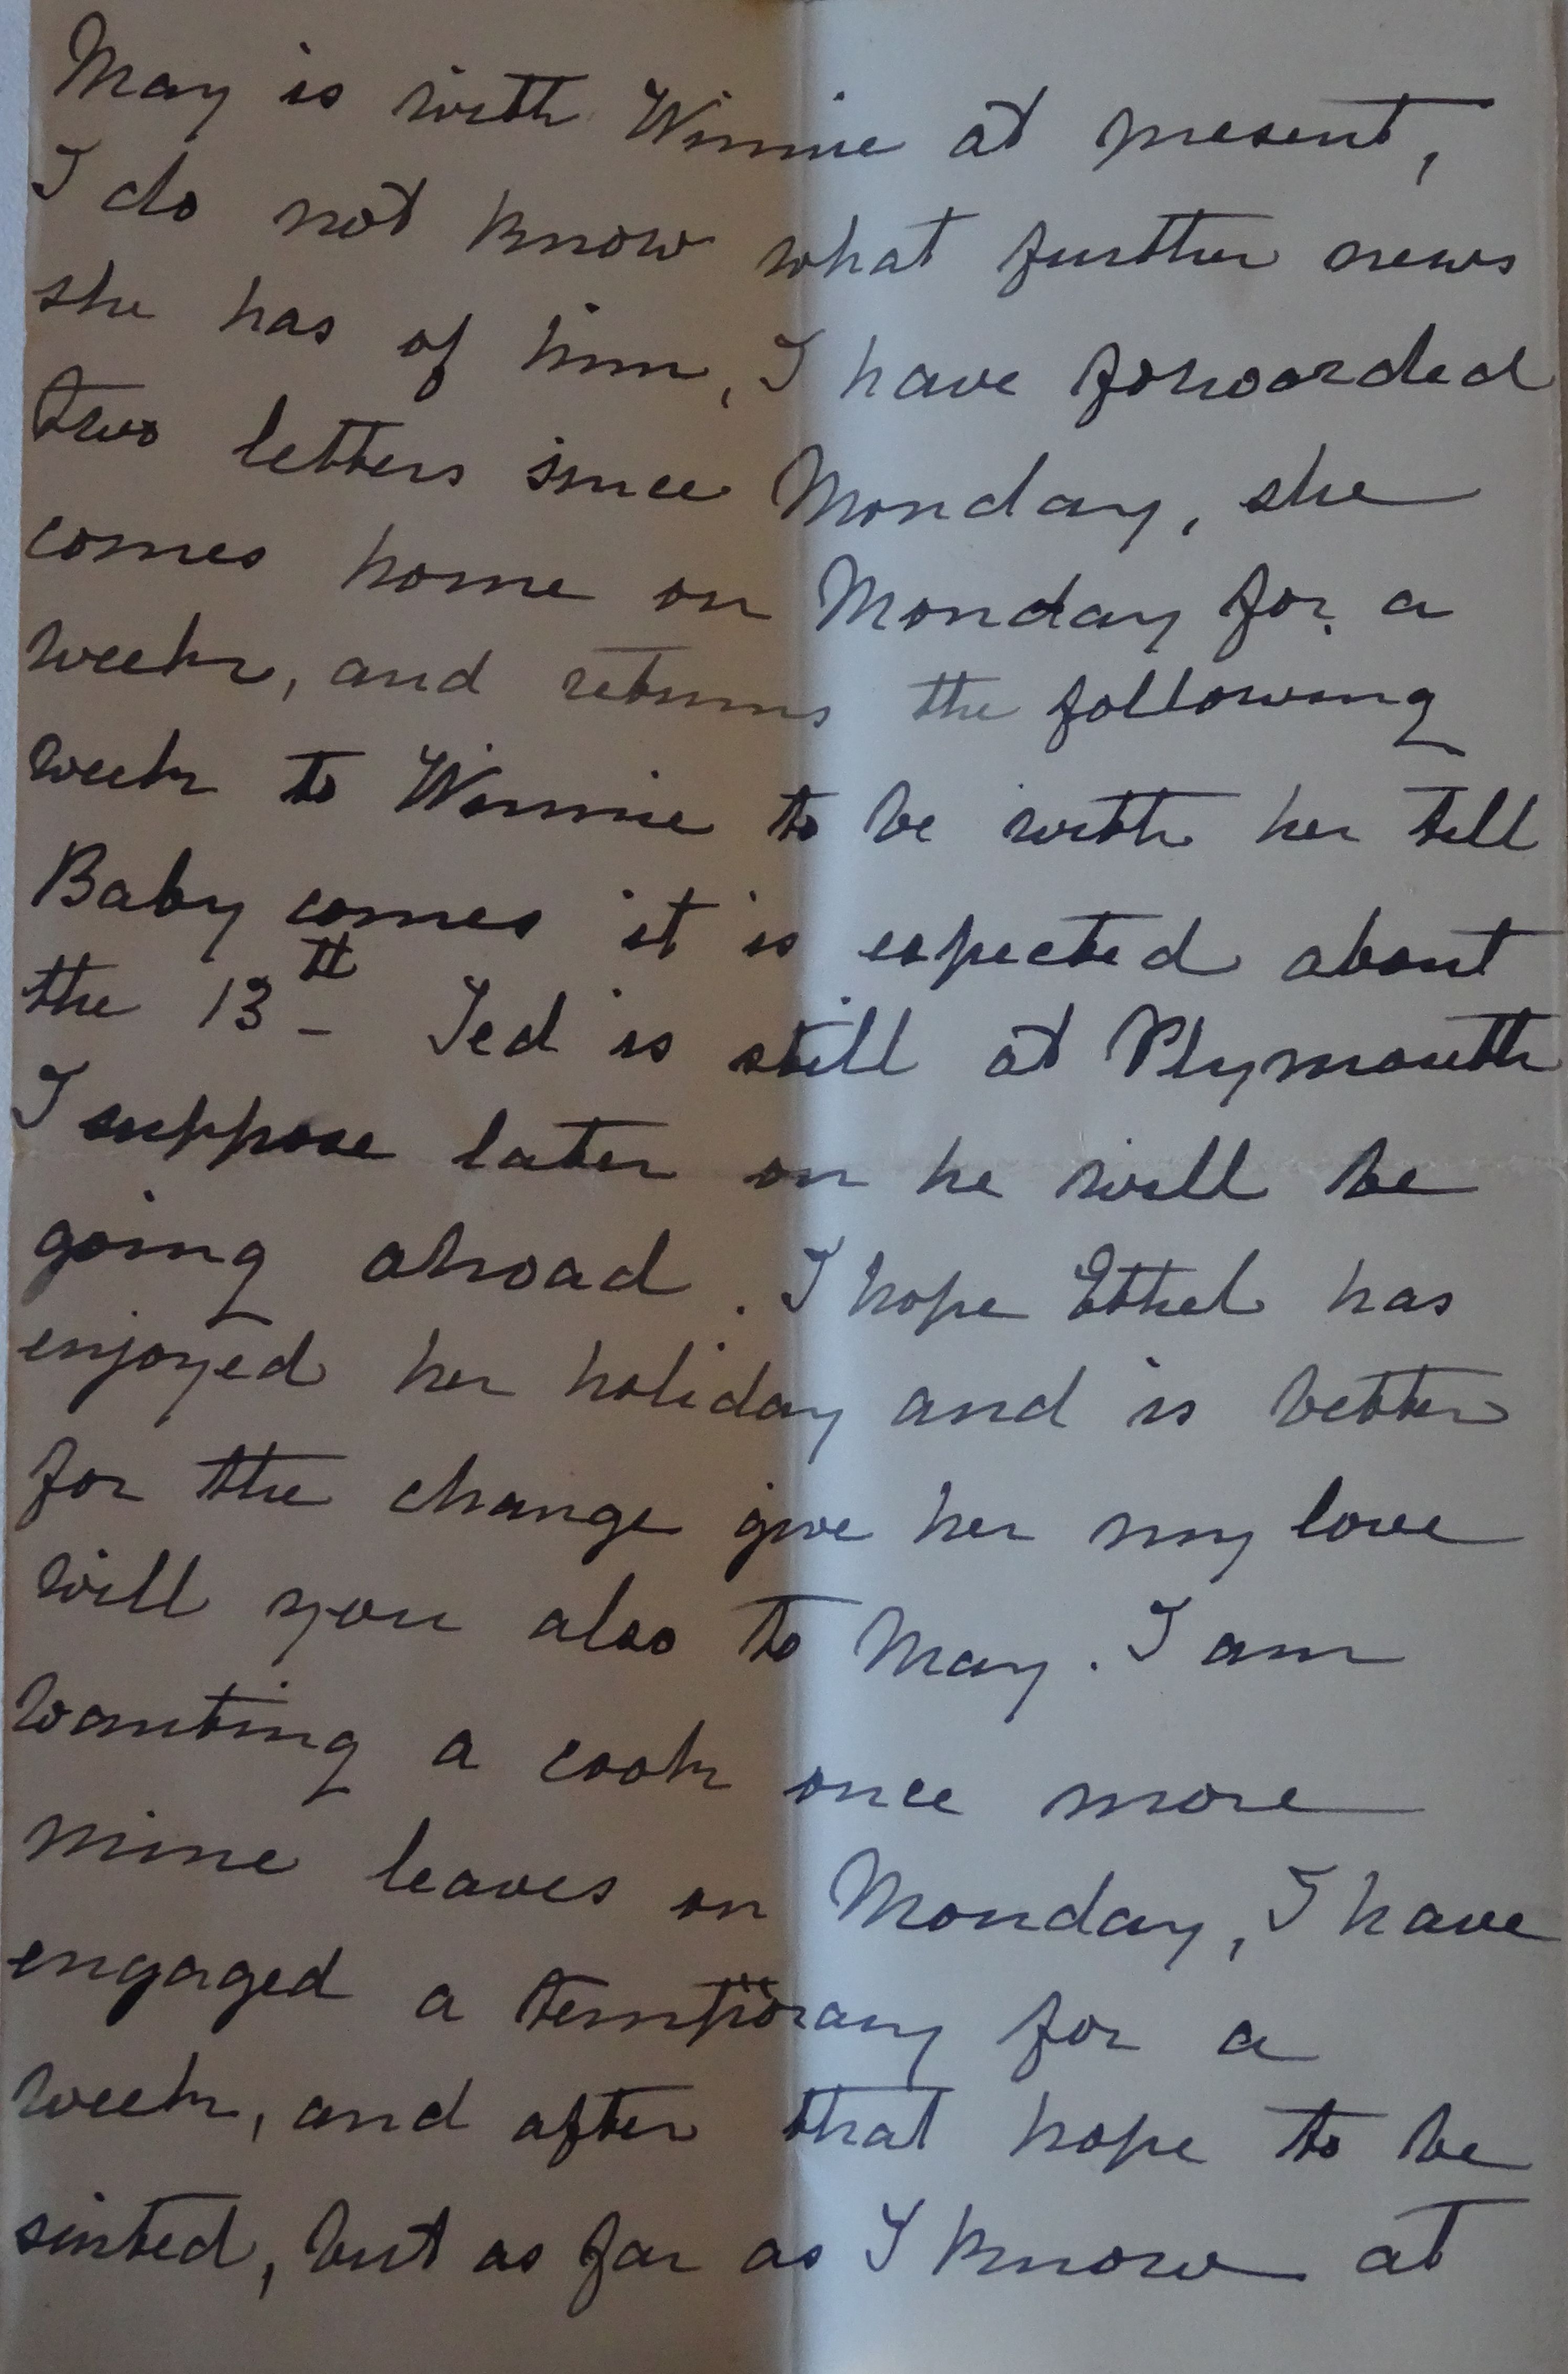 May is with Winnie at present,
I do not know what further news
she has of him, I have forwarded
two letters since Monday, she
comes home on Monday for a
week, and returns the following
week to Winnie to be with her till
Baby comes it is expected about
the 13th - Ted is still at Plymouth
I suppose later on he will be
going abroad. I hope Ethel has
enjoyed her holiday and is better
for the change give her my love
will you also to May. I am
wanting a cook once more
mine leaves on Monday, I have
engaged a temporary for a
week, and after that hope to be
suited, but as far as I know at